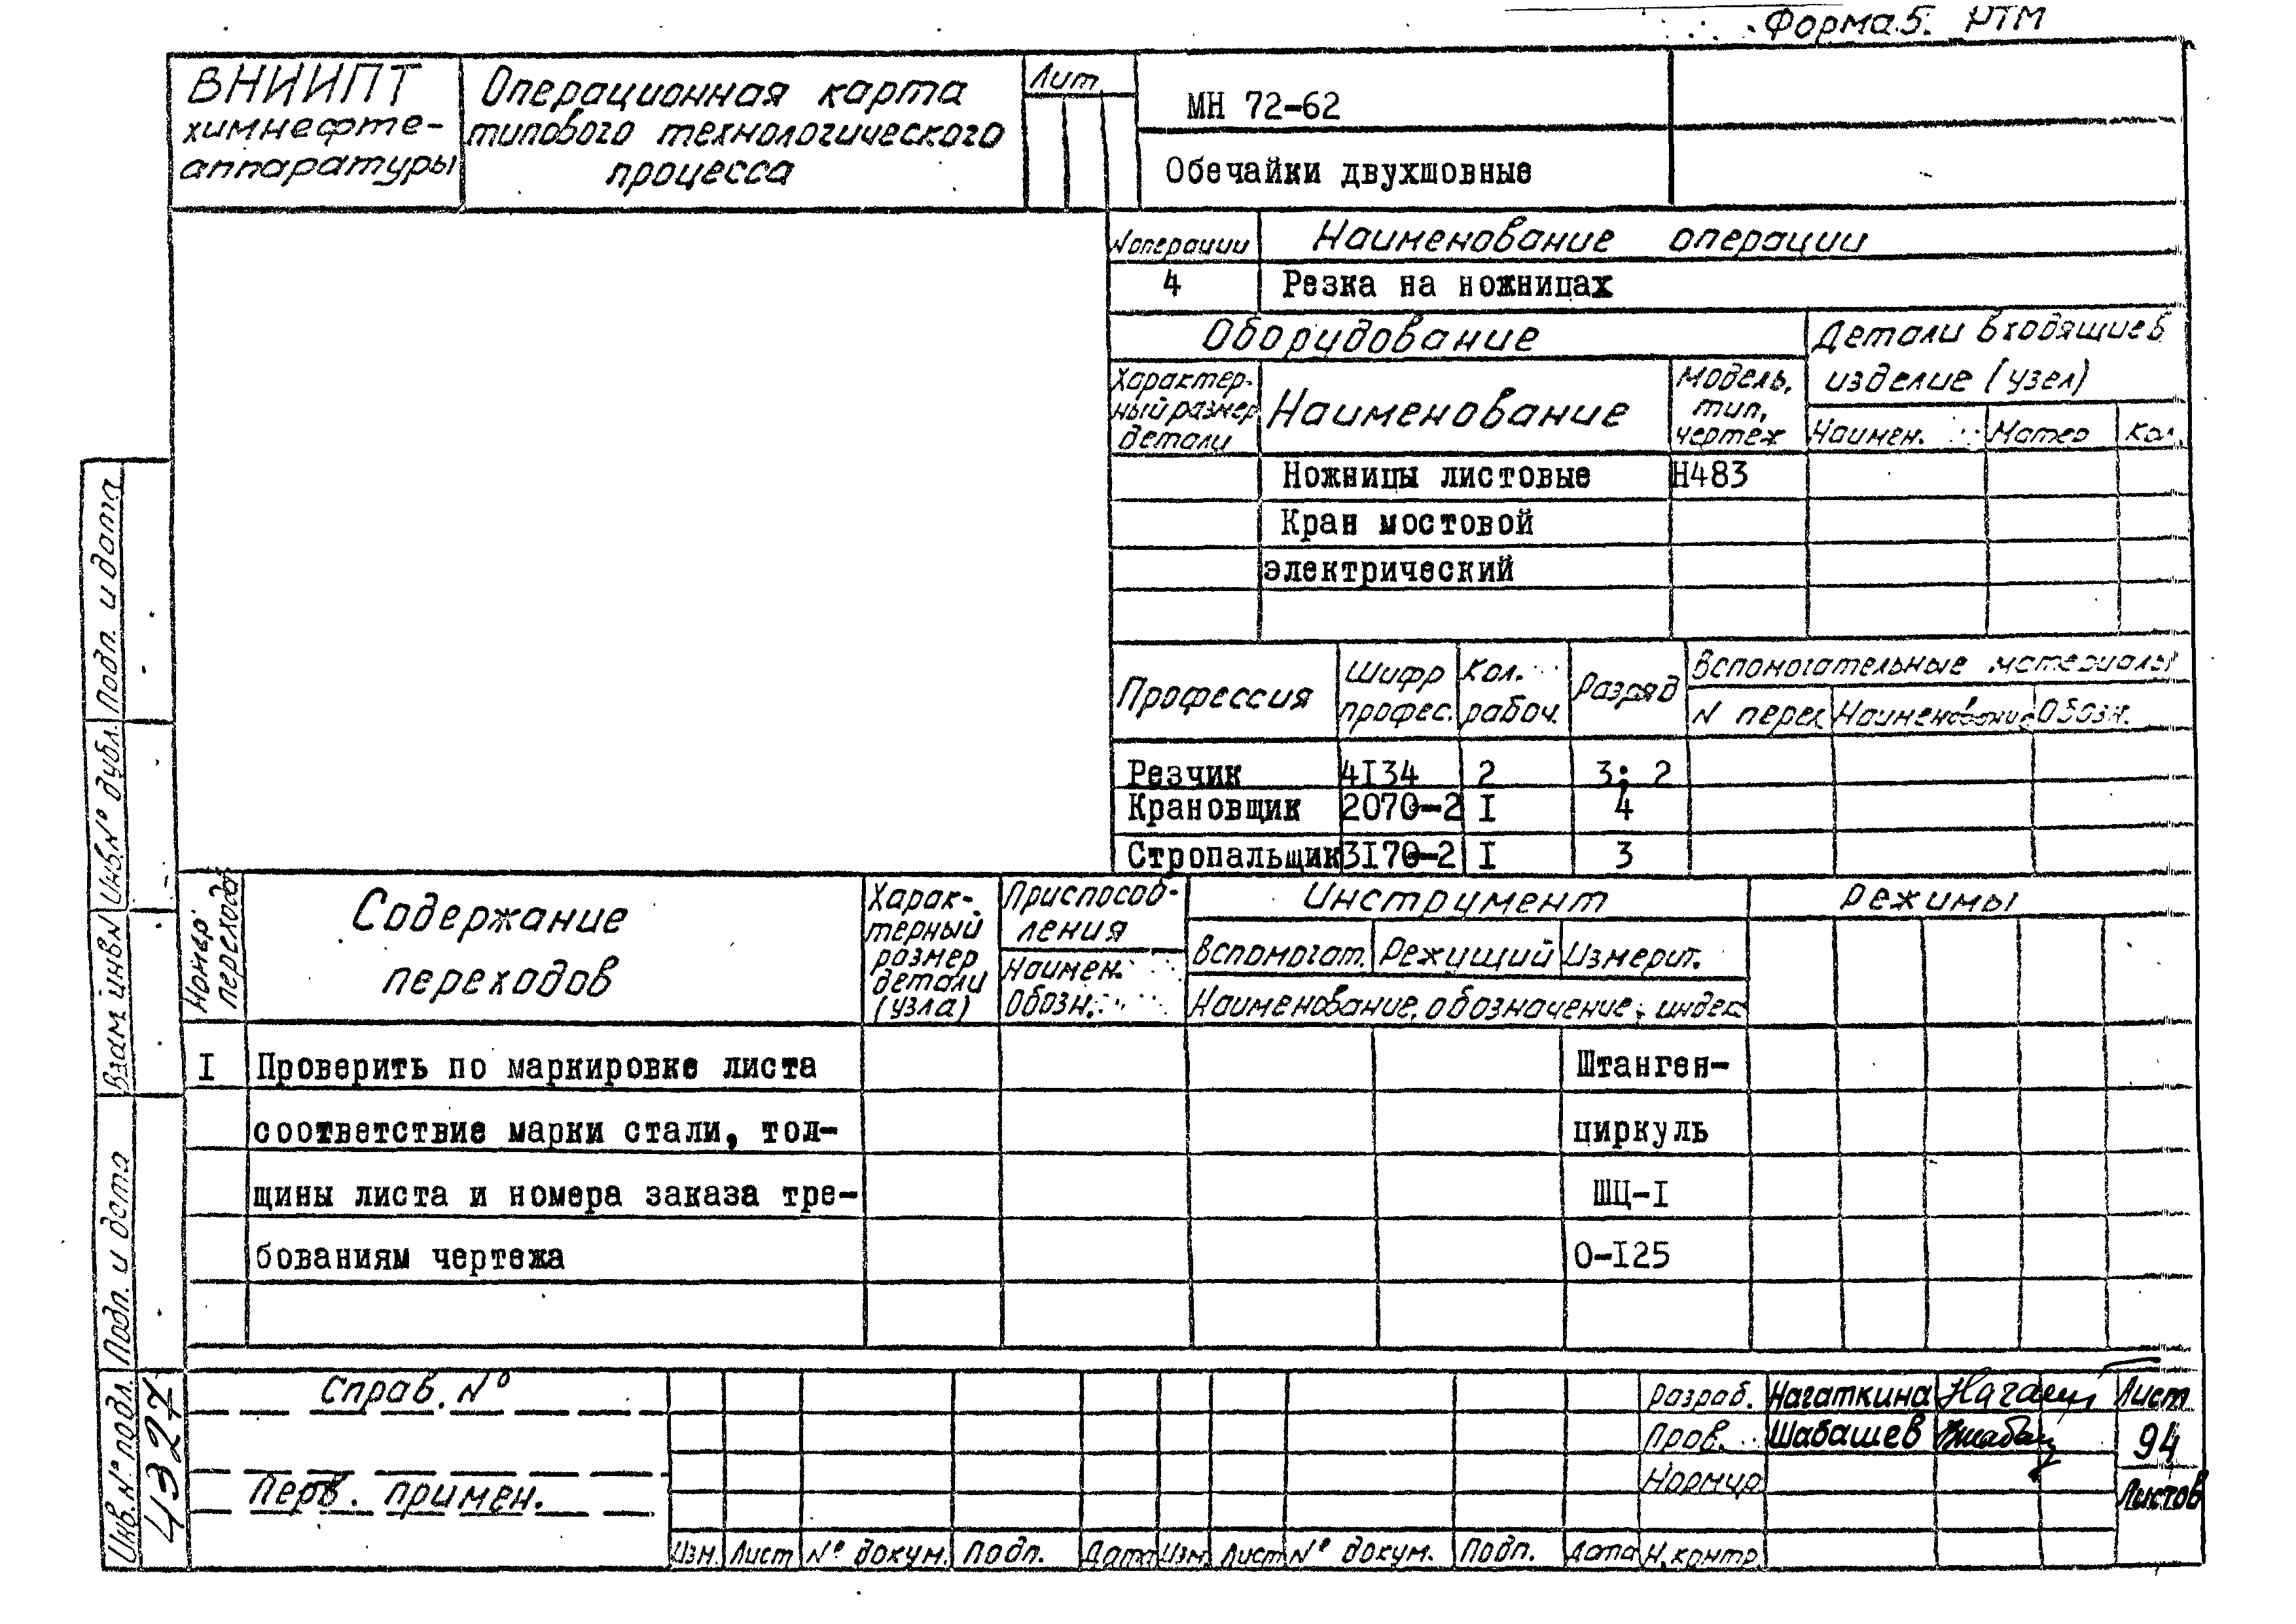 Форма 5. РТМ
ВНИИПТ
химнефте-
аппаратуры
Операционная карта
типового технологического
процесса
Лит
МН 72-62
Обечайки двухшовные
N операции
Наименование операции
4
Резка на ножницах
Оборудование
Детали входящие в
изделие (узел)
Характер-
ный размер
детали
Наименование
Модель,
тип,
чертеж
Наимен.
Матер
Кол.
Ножницы листовые
Н483
Кран мостовой
электрический
Профессия
Шифр
профес.
Кол.
рабоч.
Разряд
Вспомогательные материалы
N перех
Наименование
Обозн.
Резчик 4I34 2 3; 2
Крановщик 2070-2 I 4
Стропальщик 3I70-2 I 3
Номер
перехода
Содержание
переходов
Харак-
терный
размер
детали
(узла)
Приспособ-
ления
Наимен.
Обозн.
Инструмент
Вспомогат.
Режущий
Измерит.
Наименование, обозначение, индекс
Режимы
I Проверить по маркировке листа
Штанген-
соответствие марки стали, тол-
циркуль
щины листа и номера заказа тре-
ШЦ-I
бованиям чертежа
0-I25
Подп. и дата
Инв. N° дубл.
Взам инв N
Подп. и дата
Инв. N° подл.
4327
Справ. N°
Перв. примен.
Изм.
Лист
N° докум.
Подп.
Дата
Изм
Лист
N° докум.
Подп.
Дата
Разраб. Нагаткина
Пров. Шабашев
Нормир
Н. контр.
Лист
94
Листов